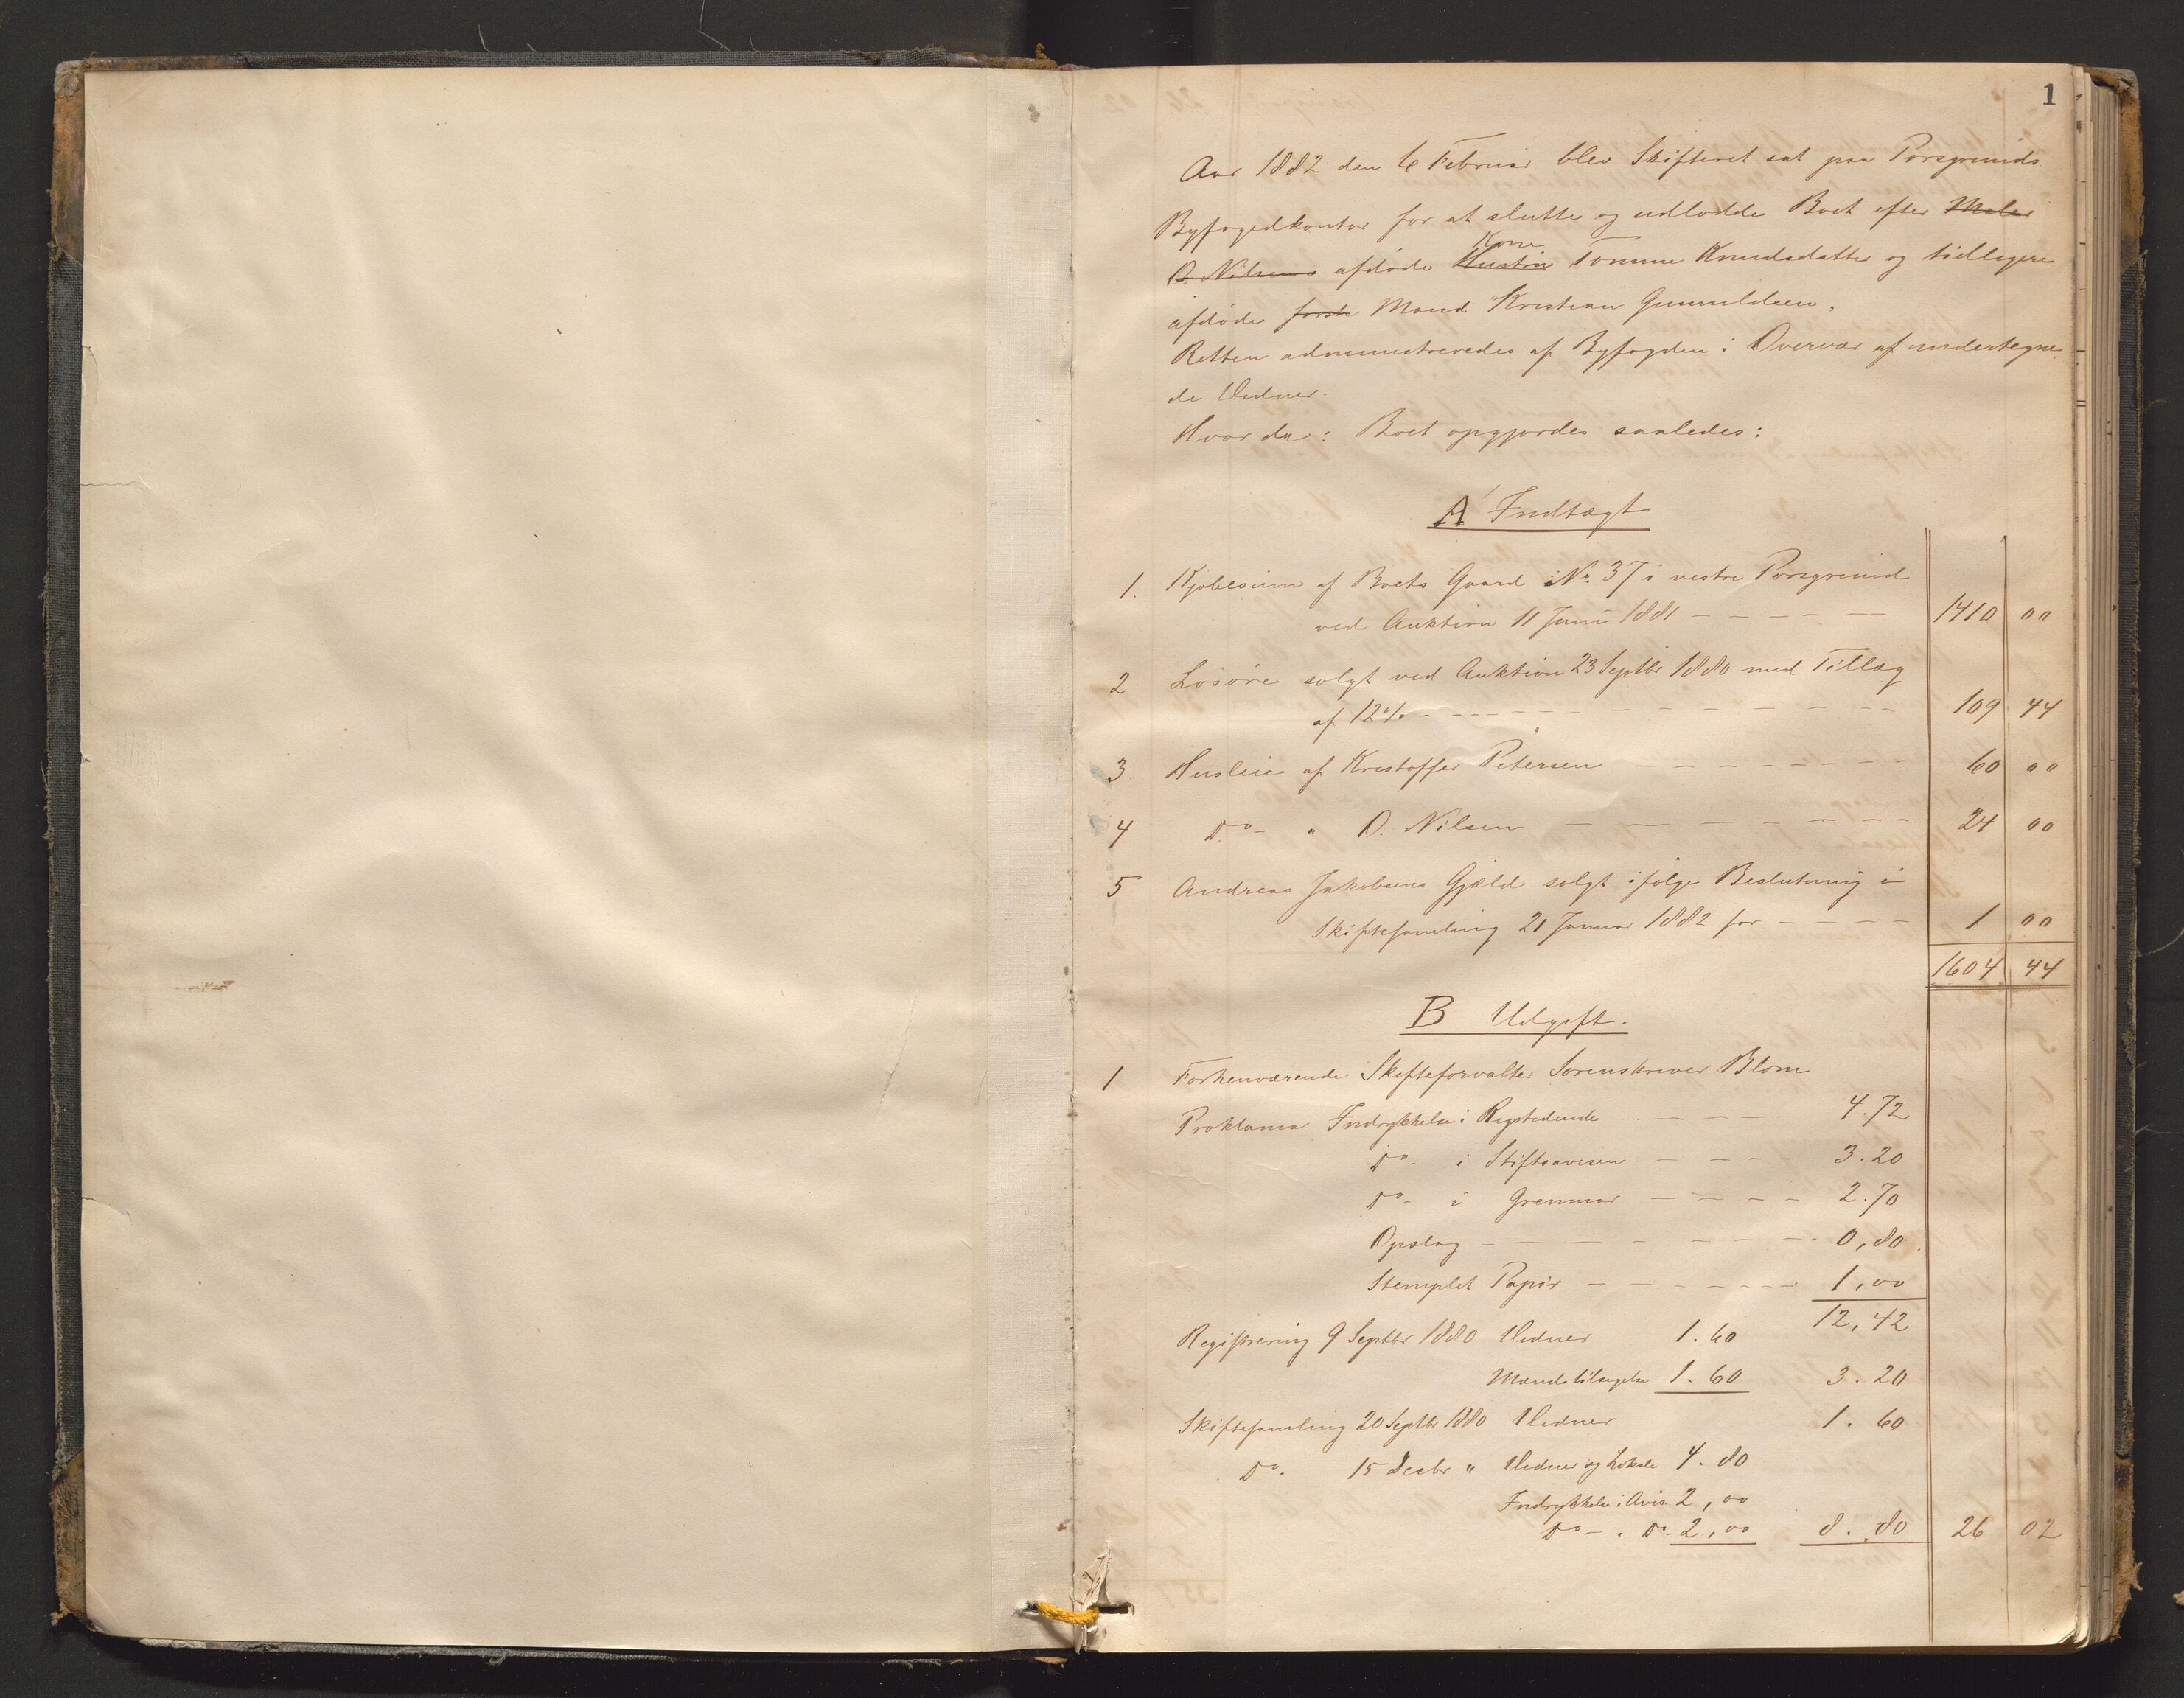 1
Aar 1882 den 6 Februar blev Skifteret sat paa Porsgrunds
Byfogedkontor for at slutte og udlodde Boet efter Maler
O. Nilsens afdøde Hustru Kone Tomine Knudsdatter og tidligere
afdøde første Mand Kristian Gunnuldsen.
Retten administreredes af Byfogden i Overvær af undertegne
de Vidner.
Hvorda: Boet opgjordes saaledes:
A Indtægt
1. Kjøbesum af Boets Gaard No. 37 i vestre Porsgrund
ved Auktion 11 Juni 1881 - - - - - 1410 00
2 Løsøre solgt ved Auktion 23 Septbr 1880 med Tillæg
af 12% - - - - - - - - - - - 109 44
3. Husleie af Kristoffer Petersen - - - - - - - - 60 00
4 Do - " O. Nilsen - - - - - - - - - 24 00
5 Andreas Jakobsens Gjæld solgt ifølge Beslutning i
Skiftesamling 21 Januar 1882 for - - - - - 1 00
1604 44
B Udgift.
1 Forhenværende Skifteforvalter Sorenskriver Blom
Proklama Indrykkelse i Rigstidende - - - - 4.72
Do - i Stiftsavisen - - - - 3.20
Do - i Grenmar - - - - 2.70
Opslag - - - - - - - - 0,80
Stemplet Papir - - - - - - 1,00
12,42
Registrering 9 Septbr 1880 Vidner 1.60
Mændstilsigelse 1.60 3.20
Skiftesamling 20 Septbr 1880 Vidner 1.60
Do. 15 Decbr " Vidner og Lokale 4.80
Indrykkelse i Avis 2,00
Do - . Do. 2,00 8.80 26 02